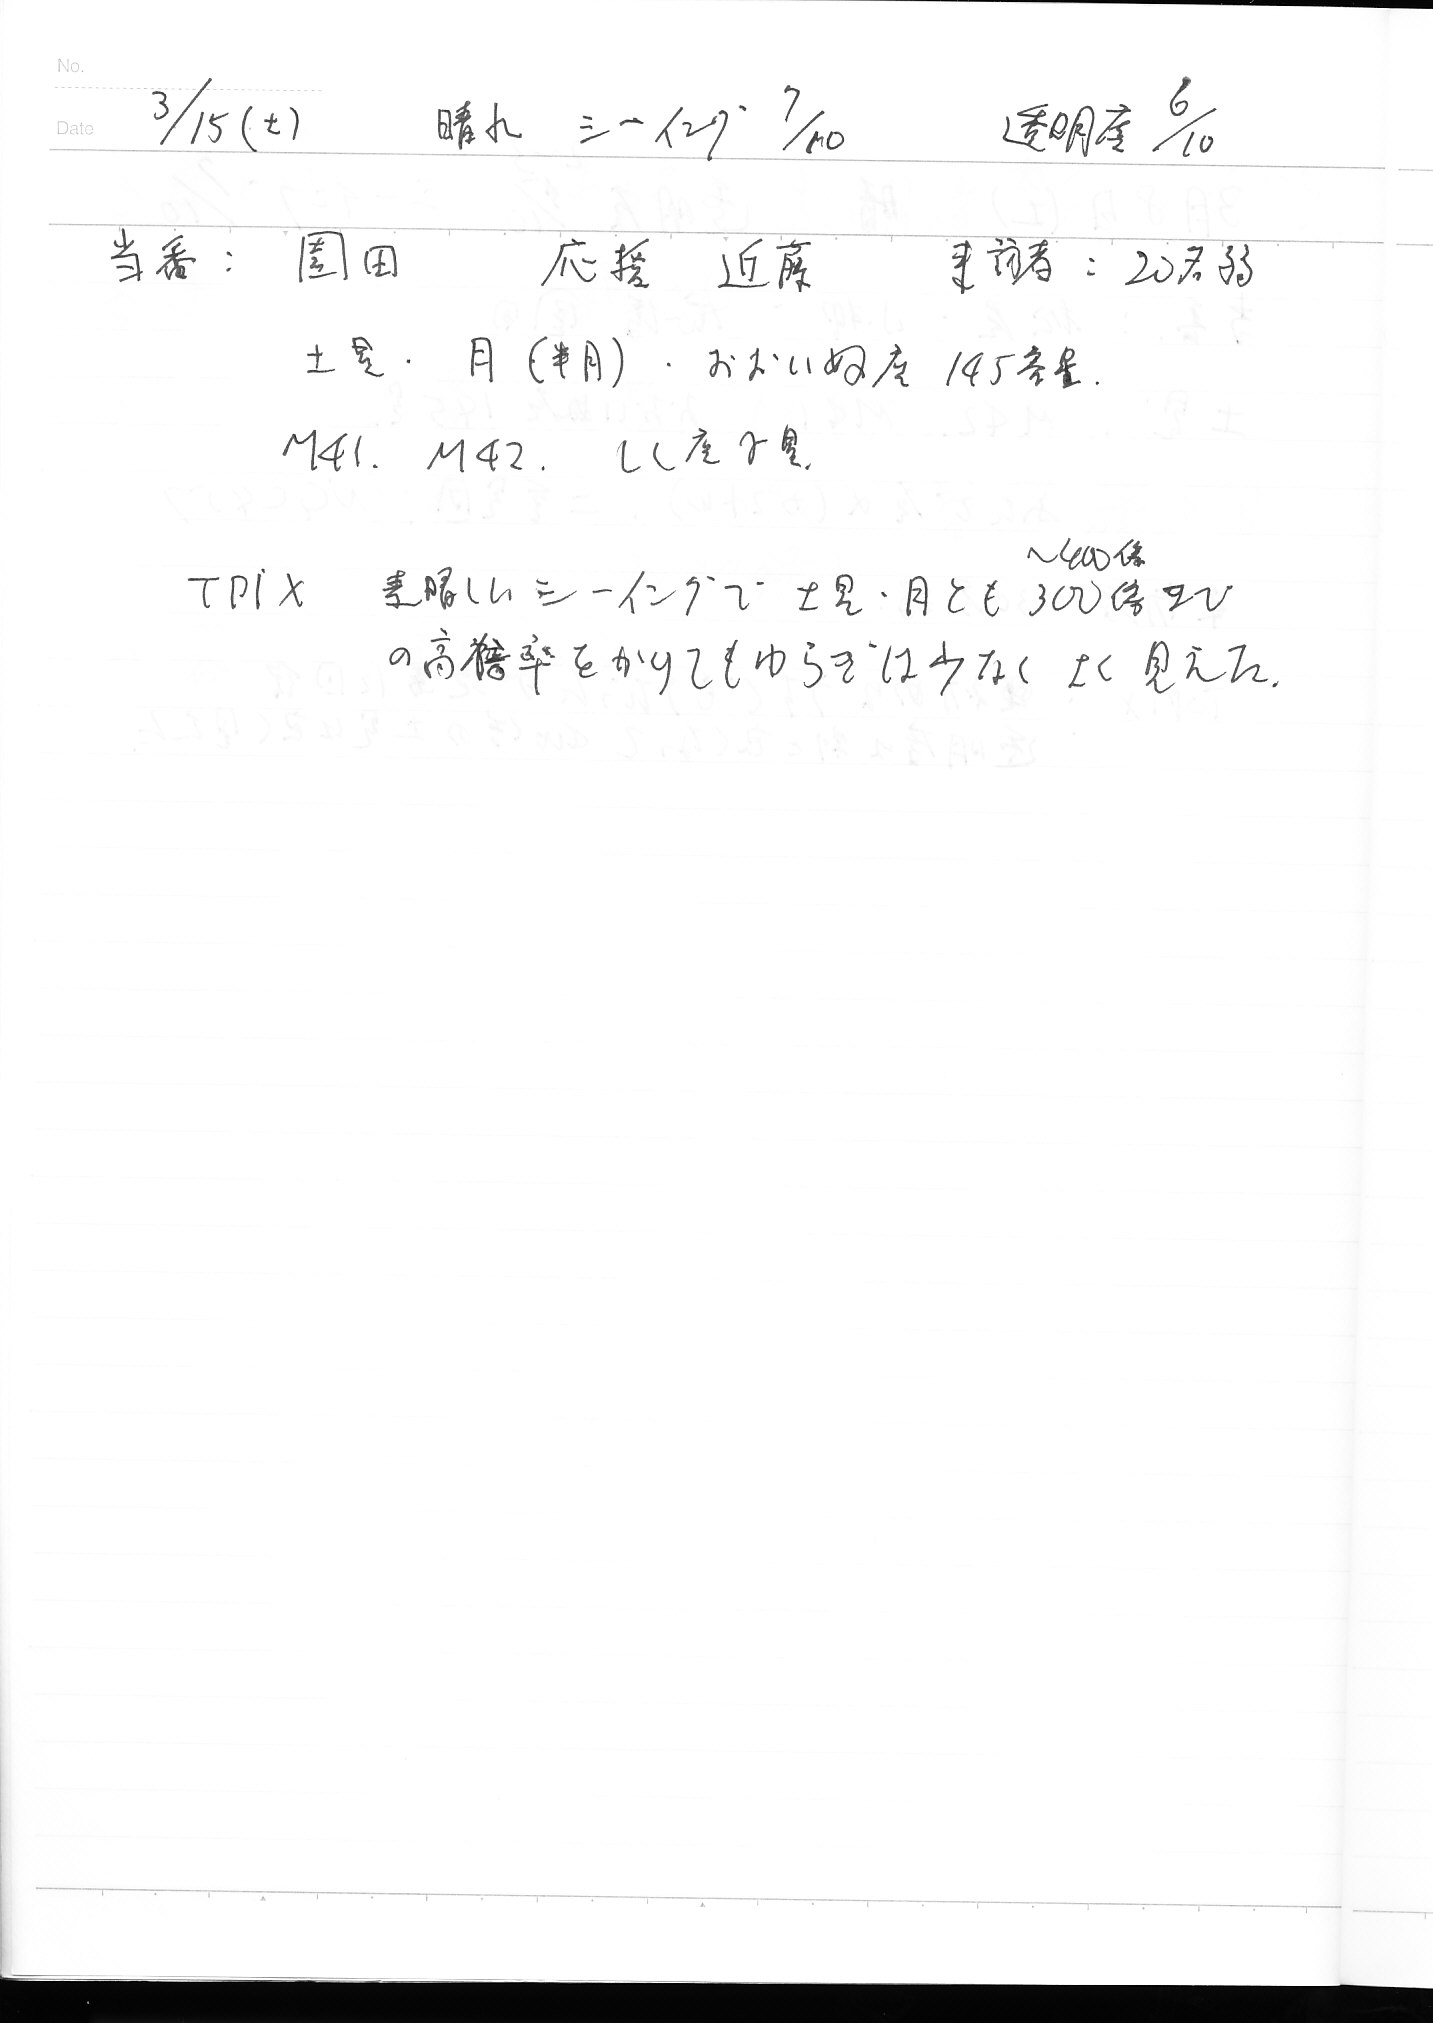 No.
Date 3/15(土) 晴れ シーイング 7/10 透明度 6/10
当番: 園田 応援 近藤 来訪者: 20名弱
土星・月(半月)・おおいぬ座145番星.
M41. M42. しし座γ星.
TPiX 素晴しいシーイングで土星・月とも300倍まで
~400倍
の高倍率をかけてもゆらぎは少なくよく見えた.